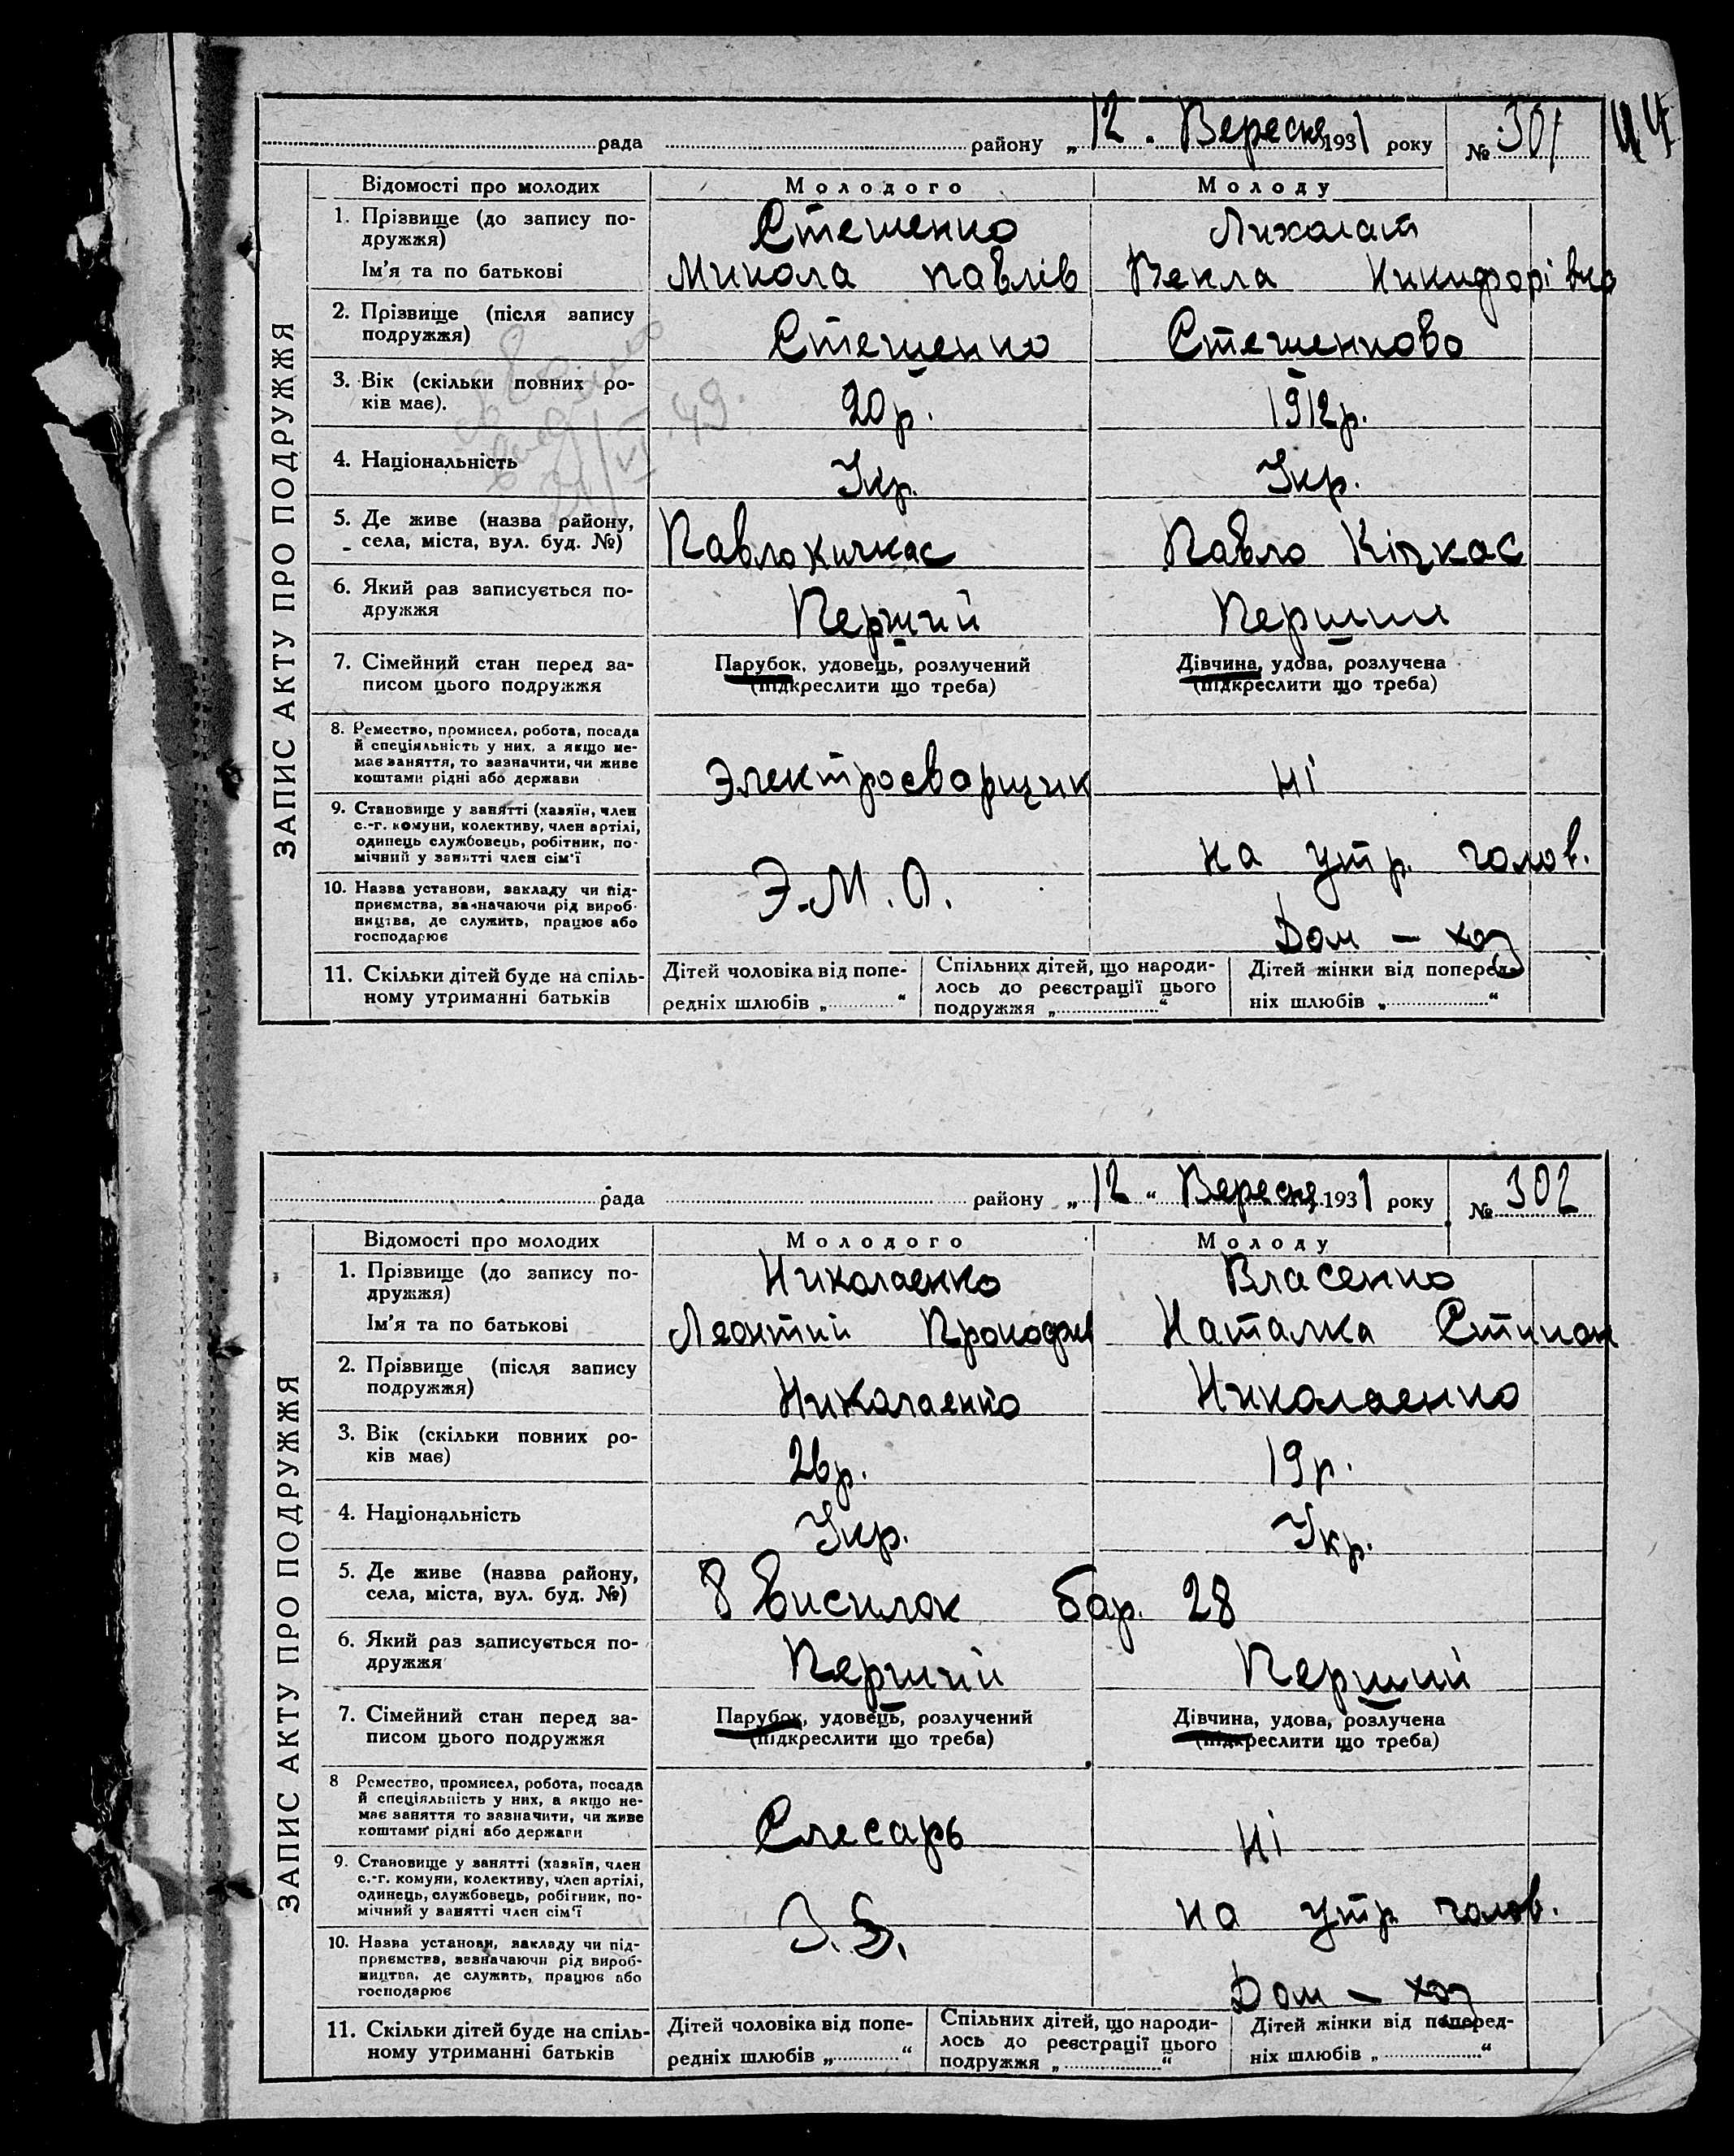 рада району „12" Вересня 1931 року № 301 44
ЗАПИС АКТУ ПРО ПОДРУЖЖЯ
Відомості про молодих Молодого Молоду
1. Прізвище (до запису по-
дружжя) Стешенко Лихолат
Ім'я та по батькові Микола Павлів Векла Никифорівно
2. Прізвище (після запису
подружжя) Стешенко Стешенково
3. Вік (скільки повних ро-
ків має). 20р. 1912р.
VI 49.
4. Національність Укр. Укр.
5. Де живе (назва району,
села, міста, вул. буд. №) Павлокичкас Павло Кічкас
6. Який раз записується по-
дружжя Перший Перший
7. Сімейний стан перед за-
писом цього подружжя
Парубок, удовець, розлучений
(підкреслити що треба)
Дівчина, удова, розлучена
(підкреслити що треба)
8. Ремество, промисел, робота, посада
й спеціяльність у них, а якщо не-
має заняття, то зазначити, чи живе
коштами рідні або держави
Электросварщик Ні
9. Становище у занятті (хазяїн, член
с.-г. комуни, колективу, член артілі,
одинець службовець, робітник, по-
мічний у занятті член сім'ї
на утр. голов.
10. Назва установи, закладу чи під-
приємства, зазначаючи рід вироб-
ництва, де служить, працює або
господарює
Э.М.О. Дом – хоз
11. Скільки дітей буде на спіль-
ному утриманні батьків
Дітей чоловіка від попе-
редніх шлюбів „ “
Спільних дітей, що народи-
лось до реєстрації цього
подружжя „ “
Дітей жінки від поперед-
ніх шлюбів „ “
рада району „12“ Вересня 1931 року № 302
ЗАПИС АКТУ ПРО ПОДРУЖЖЯ
Відомості про молодих Молодого Молоду
1. Прізвище (до запису по-
дружжя) Николаенко Власенко
Ім'я та по батькові Леонтий Прокофів Наталка Степан
2. Прізвище (після запису
подружжя) Николаенко Николаенко
3. Вік (скільки повних ро-
ків має) 26р. 19р.
4. Національність Укр. Укр.
5. Де живе (назва району,
села, міста, вул. буд. №) 8 висилок бар. 28
6. Який раз записується по-
дружжя Перший Перший
7. Сімейний стан перед за-
писом цього подружжя
Парубок, удовець, розлучений
(підкреслити що треба)
Дівчина, удова, розлучена
(підкреслити що треба)
8 Ремество, промисел, робота, посада
й спеціяльність у них, а якщо не-
має заняття то зазначити, чи живе
коштами рідні або держави
Слесарь Ні
9. Становище у занятті (хазяїн, член
с.-г. комуни, колективу, член артілі,
одинець, службовець, робітник, по-
мічний у занятті член сім'ї
на утр голов.
10. Назва установи, закладу чи під-
приємства, зазначаючи рід вироб-
ництва, де служить, працює або
господарює
Дом – хоз
11. Скільки дітей буде на спіль-
ному утриманні батьків
Дітей чоловіка від попе-
редніх шлюбів „ “
Спільних дітей, що народи-
лось до реєстрації цього
подружжя „ “
Дітей жінки від поперед-
ніх шлюбів „ “